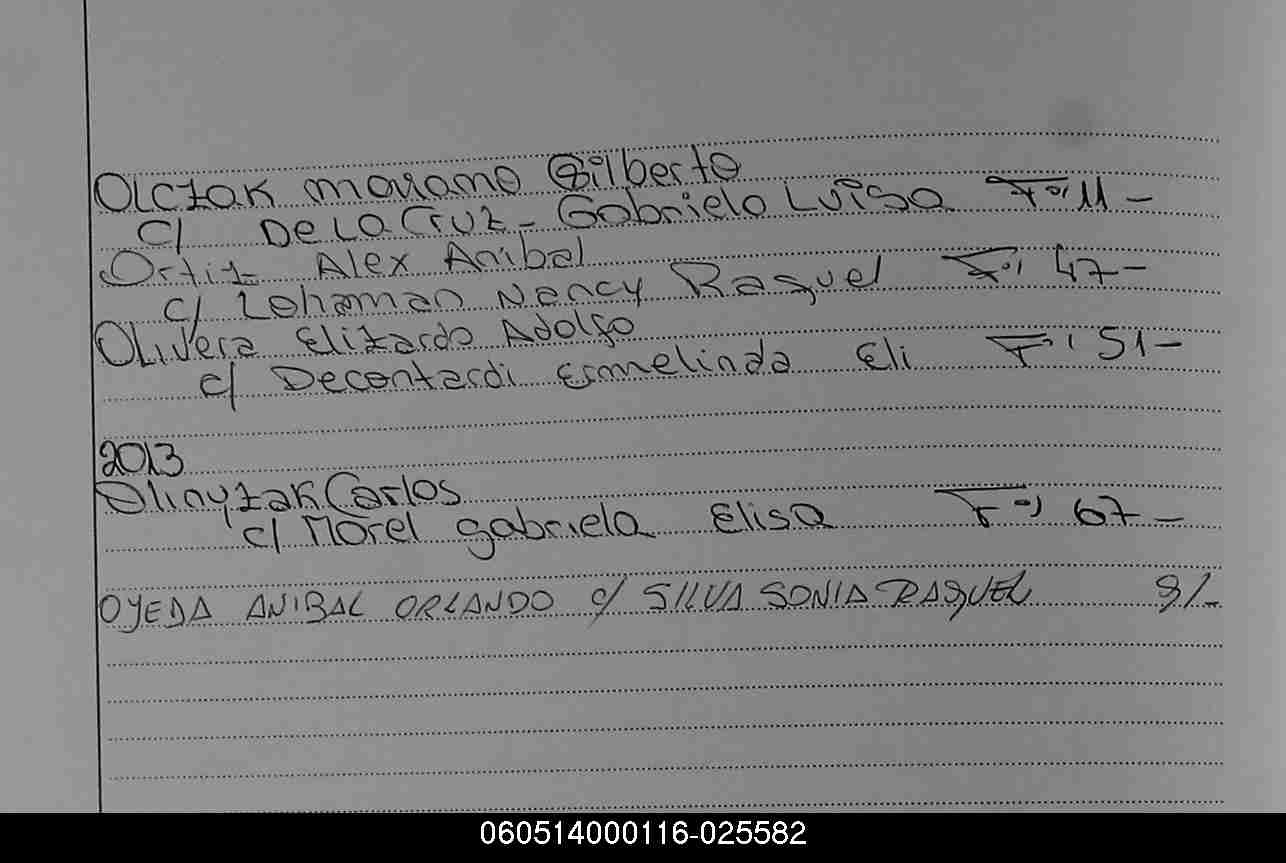 Olczak Mariano Gilberto
c/ De La Cruz - Gabriela Luisa F° 11 -
Ortiz Alex Anibal
c/ Lehaman Nancy Raquel F° 47 -
Olivera Elizardo Adolfo
c/ Decontardi Esmelinda Eli F° 51 -
2013
Olinyzak Carlos
c/ Morel gabriela Elisa F° 67 -
OJEDA ANIBAL ORLANDO c/ SILVA SONIA RAQUEL
060514000116-025582